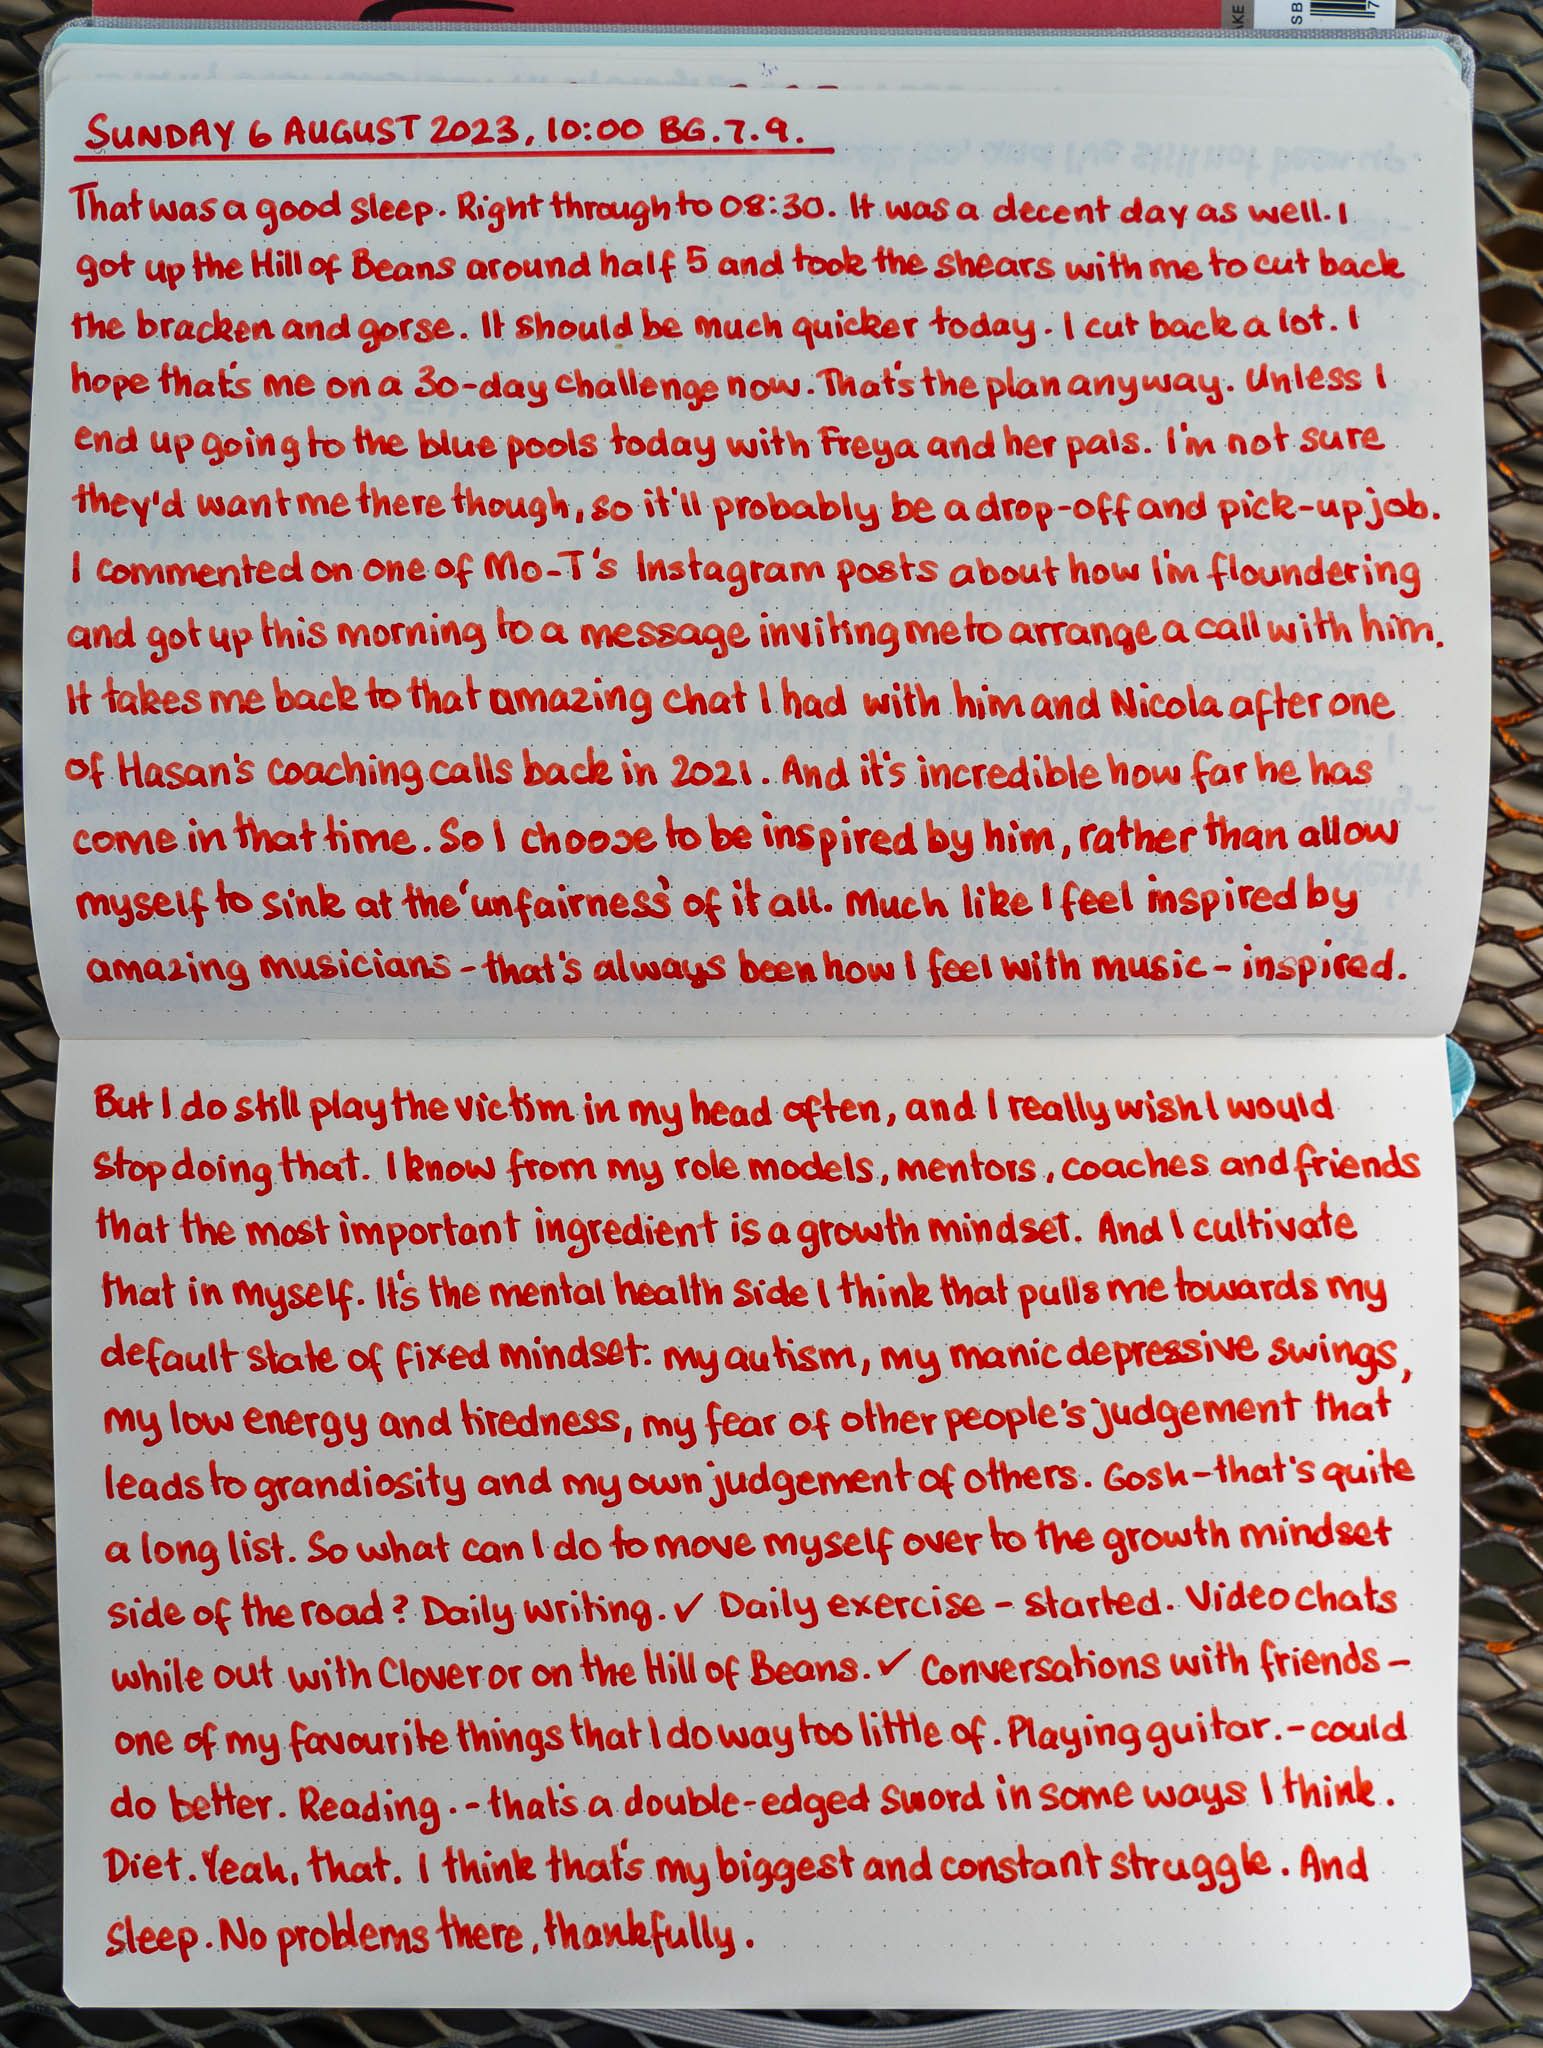 AKE
SB
7
SUNDAY 6 AUGUST 2023, 10:00 BG.7.9.
That was a good sleep. Right through to 08:30. It was a decent day as well. I
got up the Hill of Beans around half 5 and took the shears with me to cut back
the bracken and gorse. It should be much quicker today. I cut back a lot. I
hope that's me on a 30-day challenge now. That's the plan anyway. Unless I
end up going to the blue pools today with Freya and her pals. I'm not sure
they'd want me there though, so it'll probably be a drop-off and pick-up job.
I commented on one of Mo-T's Instagram posts about how I'm floundering
and got up this morning to a message inviting me to arrange a call with him.
It takes me back to that amazing chat I had with him and Nicola after one
of Hasan's coaching calls back in 2021. And it's incredible how far he has
come in that time. So I choose to be inspired by him, rather than allow
myself to sink at the 'unfairness' of it all. Much like I feel inspired by
amazing musicians - that's always been how I feel with music - inspired.
But I do still play the victim in my head often, and I really wish I would
stop doing that. I know from my role models, mentors, coaches and friends
that the most important ingredient is a growth mindset. And I cultivate
that in myself. It's the mental health side I think that pulls me towards my
default state of fixed mindset: my autism, my manic depressive swings,
my low energy and tiredness, my fear of other people's judgement that
leads to grandiosity and my own judgement of others. Gosh - that's quite
a long list. So what can I do to move myself over to the growth mindset
side of the road? Daily writing. ✓ Daily exercise - started. Video chats
while out with Clover or on the Hill of Beans. ✓ Conversations with friends -
one of my favourite things that I do way too little of. Playing guitar. - could
do better. Reading. - that's a double-edged sword in some ways I think.
Diet. Yeah, that. I think that's my biggest and constant struggle. And
sleep. No problems there, thankfully.